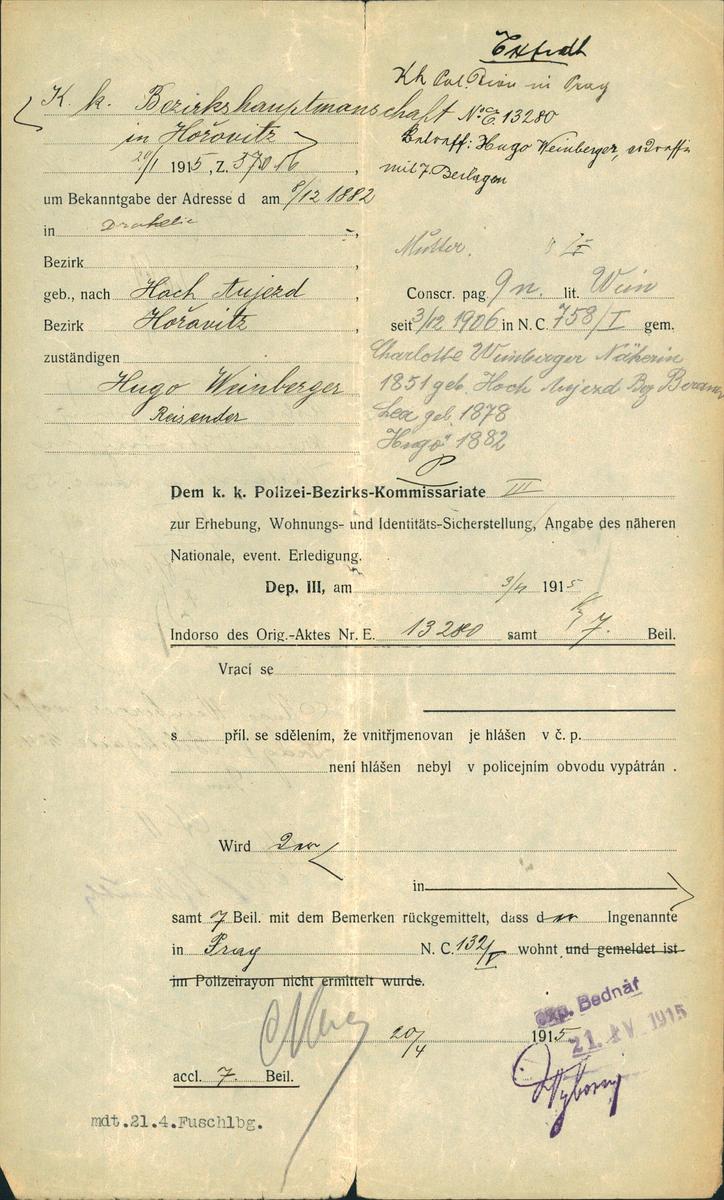 K. k. Bezirkshauptmanschaft
in Hořovitz
1915, Z. 370 16,
um Bekanntgabe der Adresse d am 8/12 1882
in
Bezirk,
geb., nach Hoch Aujezd,
Bezirk Hořovitz,
zuständigen
Hugo Weinberger
Reisender
Kk Pol. Dion in Prag
No E 13280
Betreff: Hugo Weinberger,
mit 7 Beilagen
Mutter.
Conscr. pag. 9 n. lit. Wein
seit 3/12 1906 in N. C. 758/I gem.
Charlotte Weinberger Näherin
1851 geb. Hoch Aujezd Bez
Lea geb. 1878
Hugo 1882
Dem k. k. Polizei-Bezirks-Kommissariate III
zur Erhebung, Wohnungs- und Identitäts-Sicherstellung, Angabe des näheren
Nationale, event. Erledigung.
Dep. III, am 1915
Indorso des Orig.-Aktes Nr. E. 13280 samt 7. Beil.
Vrací se
s příl. se sdělením, že vnitřjmenovan je hlášen v č. p.
není hlášen nebyl v policejním obvodu vypátrán .
Wird
in
samt 7 Beil. mit dem Bemerken rückgemittelt, dass der Ingenannte
in Prag N. C. 132/V wohnt und gemeldet ist
im Polizeirayon nicht ermittelt wurde.
20/4 1915
exp. Bednář
21. IV. 1915
accl. 7. Beil.
mdt.21.4.Fuschlbg.